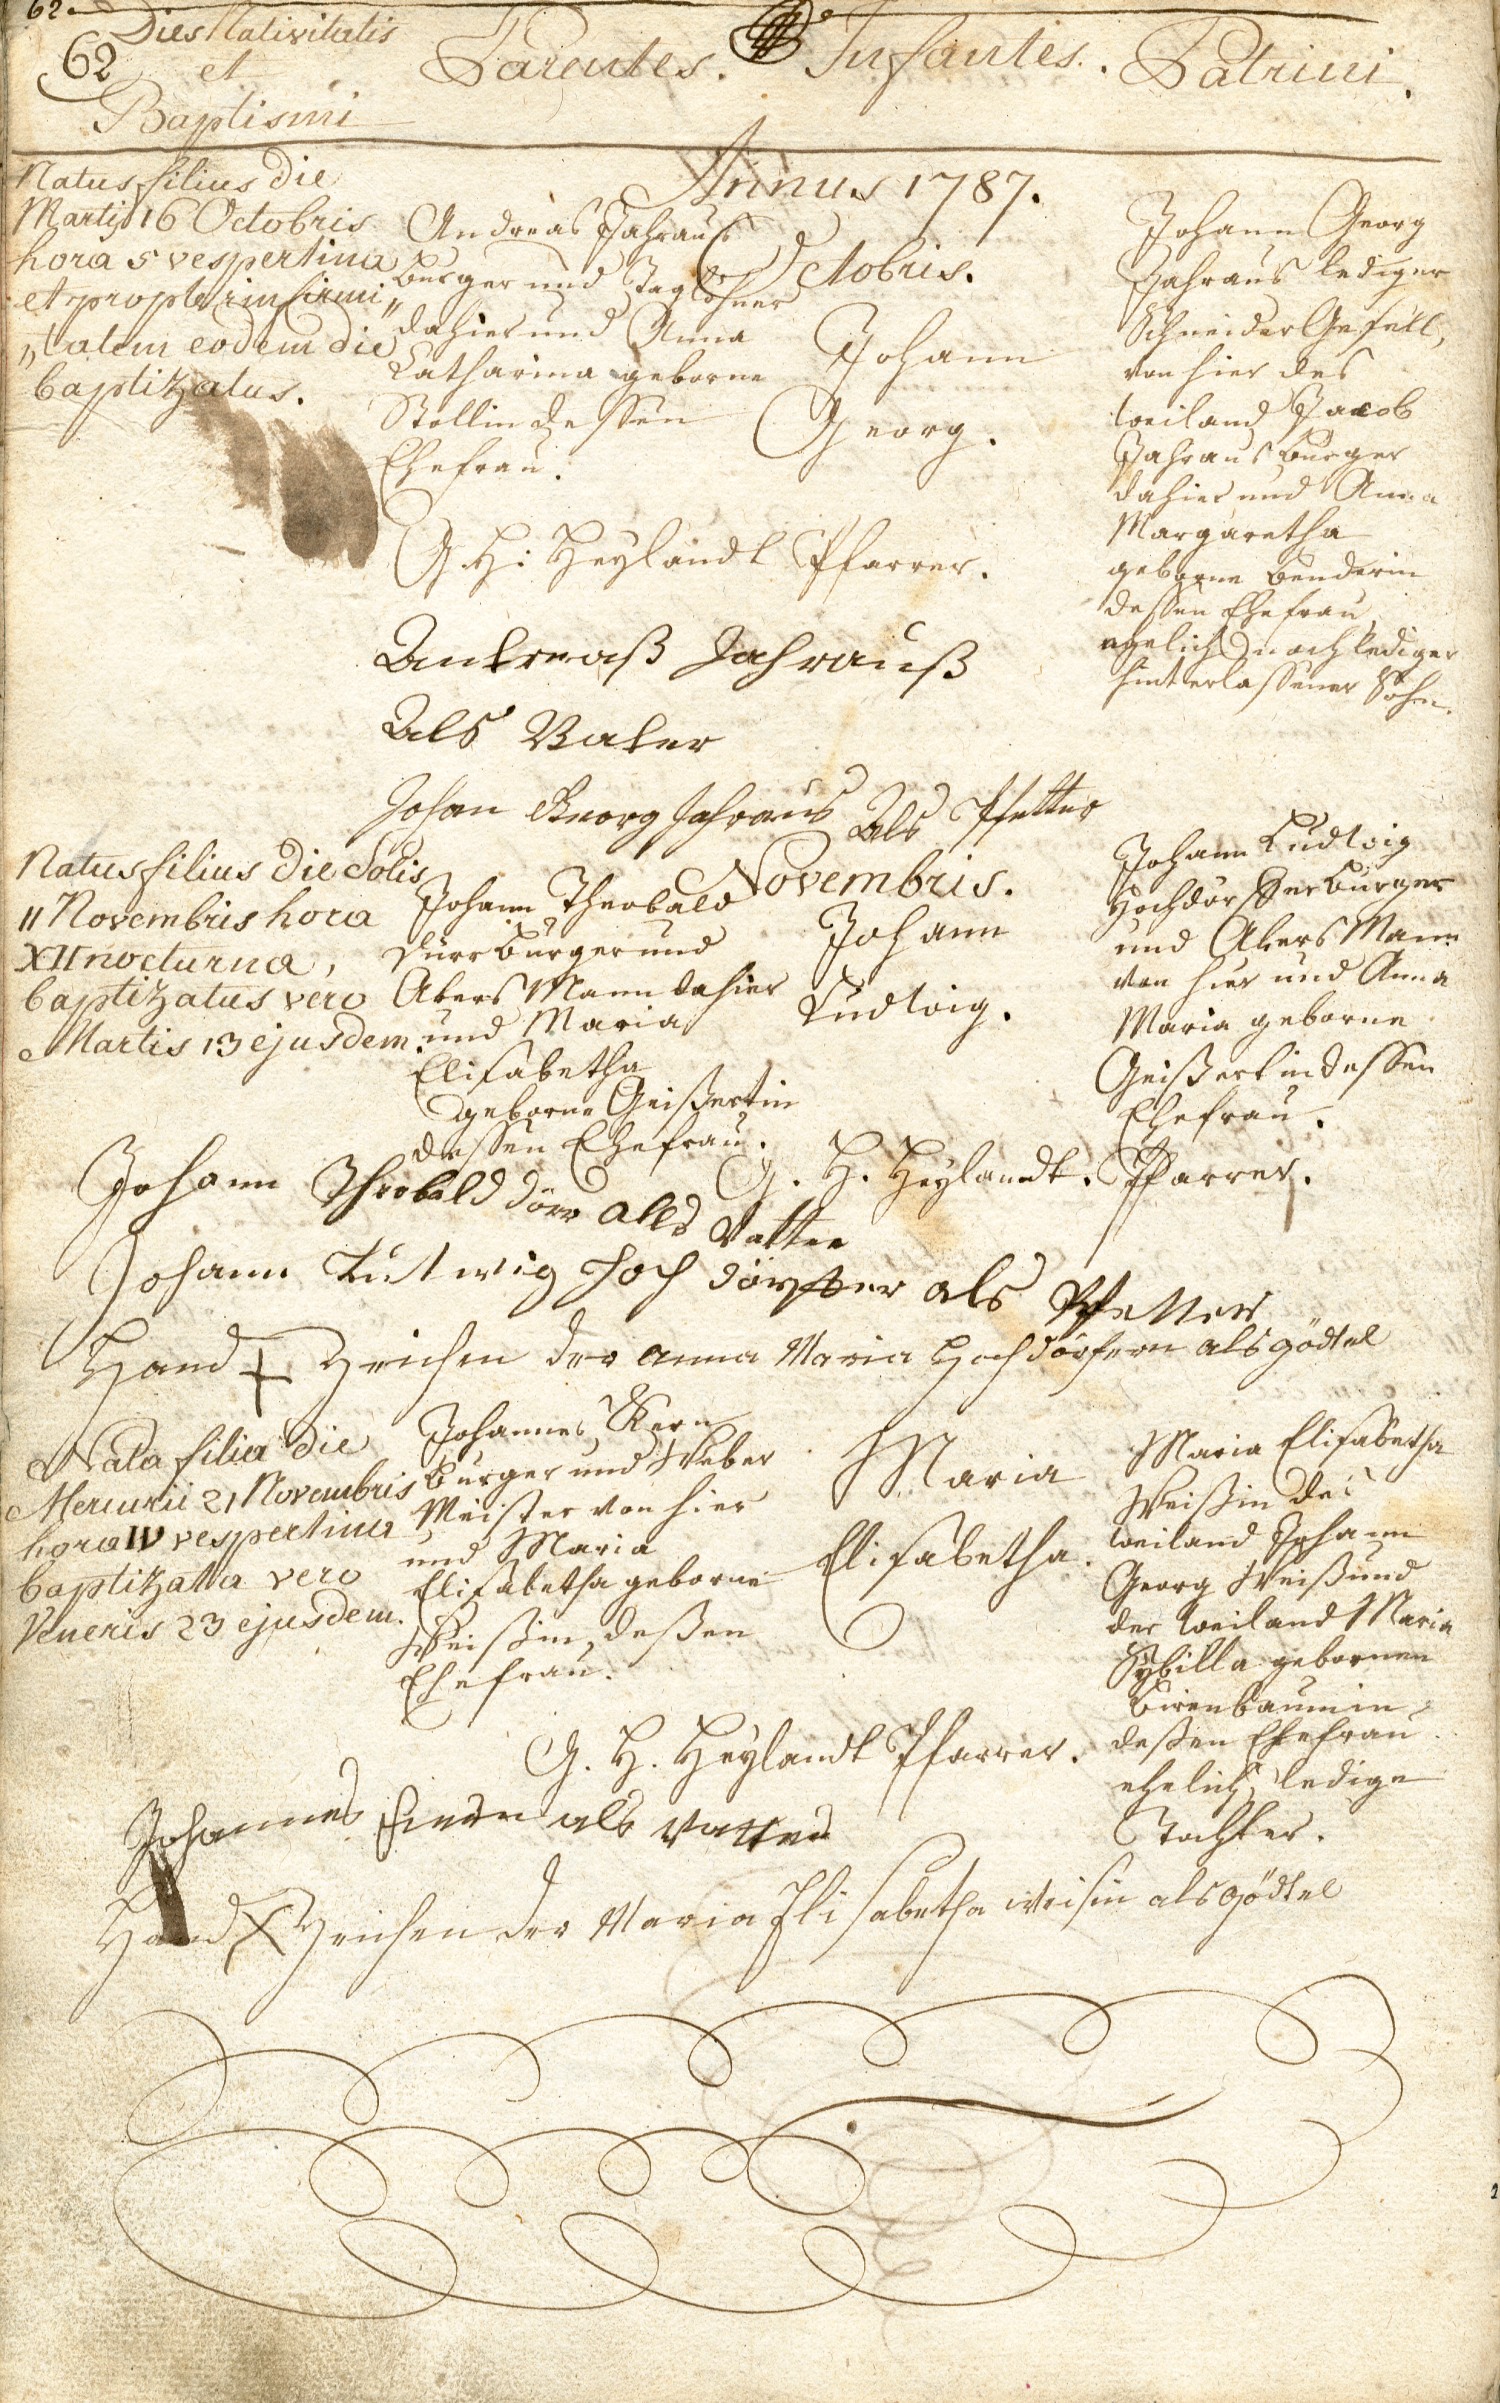 62.
62
Dies Nativitatis
et
Baptismi
Parentes.
Infantes.
Patrini.
Annus 1787.
Octobris.
Natus filius die
Martis 16 Octobris
hora 5 vespertina
et propter infirmi„
„tatem eodem die
baptizatus.
Andreas Jahraus
burger und Taglöhner
dahier und Anna
Catharina geborne
Stollin dessen
Ehefrau.
Johann
Georg.
Johann Georg
Jahraus lediger
Schneider Gesell,
von hier des
weiland Jacob
Jahraus burger
dahier und Anna
Margaretha
geborne benderin
dessen Ehefrau
ehelich noch lediger
hinterlassener Sohn.
G. H. Heylandt Pfarrer.
Antreaß Jahrauß
Als Vater
Johan Georg Jahraus Als Pfetter
Novembris.
Natus filius die Solis
11 Novembris hora
XII nocturna,
baptizatus vero
Martis 13 ejusdem.
Johann Theobald
Dürr burger und
Akers Mann dahier
und Maria
Elisabetha
geborne Geißertin
dessen Ehefrau.
Johann
Ludwig.
Johann Ludwig
Hochdörffer burger
und Akers Mann
von hier und Anna
Maria geborne
Geißertin dessen
Ehefrau.
G. H. Heylandt. Pfarrer.
Johann Theobald dörr alls Vatter
Johann Lutwig Hoch dörffer als Pfetter
Hand + Zeichen der anna Maria Hochdörfern als gödtel
Nata filia die
Mercurii 21 Novembris
hora IV vespertina
baptizata vero
Veneris 23 ejusdem.
Johannes Kern
burger und Weber
Meister von hier
und Maria
Elisabetha geborne
Weißin, deßen
Ehefrau.
Maria
Elisabetha.
Maria Elisabetha
Weißin des
weiland Johann
Georg Weiß und
der weiland Maria
Sybilla gebornen
birenbaumin
deßen Ehefrau
ehelich ledige
Tochter.
G. H. Heylandt Pfarrer.
Johannes als vatter
Hand X Zeichen der Maria Elisabetha weisin als gödtel